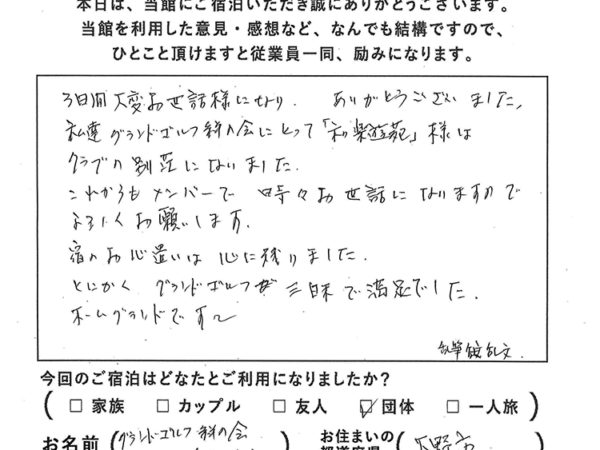 本日は、当館にご宿泊いただき誠にありがとうございます。
当館を利用した意見・感想など、なんでも結構ですので、
ひとこと頂けますと従業員一同、励みになります。
3日間大変お世話様になり、ありがとうございました。
私達グランドゴルフ 粋の会にとって「和楽遊苑」様は
クラブの別荘になりました。
これからもメンバーで時々お世話になりますので
よろしくお願いします。
宿のお心遣いは心に残りました。
とにかく グランドゴルフ 三昧で満足でした。
ホームグランドです〜
乱筆乱文.
今回のご宿泊はどなたとご利用になりましたか?
( □ 家族 □ カップル □ 友人 ☑ 団体 □ 一人旅 )
お名前 ( グランドゴルフ 粋の会 ) お住まいの
都道府県 (